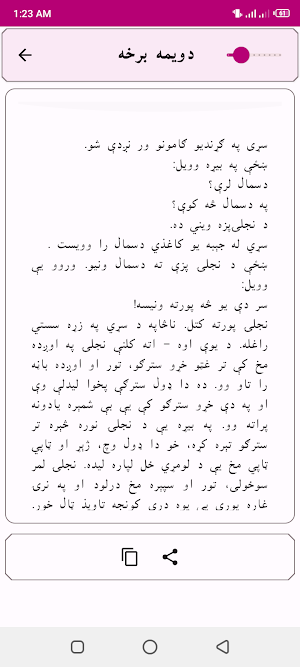 1:23 AM
61
دویمه برخه
سړی په ګړندیو ګامونو ور نږدې شو.
ښځې په بیړه وویل:
دسمال لرې؟
په دسمال څه کوې؟
د نجلۍ پزه وینې ده.
سړي له جېبه یو کاغذي دسمال را وویست .
ښځې د نجلۍ پزې ته دسمال ونیو. وروو یې
وویل:
سر دې یو څه پورته ونیسه!
نجلۍ پورته کتل. ناڅاپه د سړي په زړه سستي
راغله. د یوې اوه – اته کلنې نجلۍ په اوږده
مخ کې تر غټو خړو سترګو، تور او اوږده باڼه
را تاو وو. ده دا ډول سترګې پخوا لیدلې وې
او په دې خړو سترګو کې یې بې شمېره یادونه
پراته وو. په بیړه یې د نجلۍ نوره څېره تر
سترګو تېره کړه، خو دا ډول وچ، ژېړ او ټاپي
ټاپي مخ یې د لومړي ځل لپاره لیده. نجلۍ لمر
سوځولی، تور او سپېره مخ درلود او په نرۍ
غاړه پورې یې یوه درې کونجه تاویذ ټال خوړ.